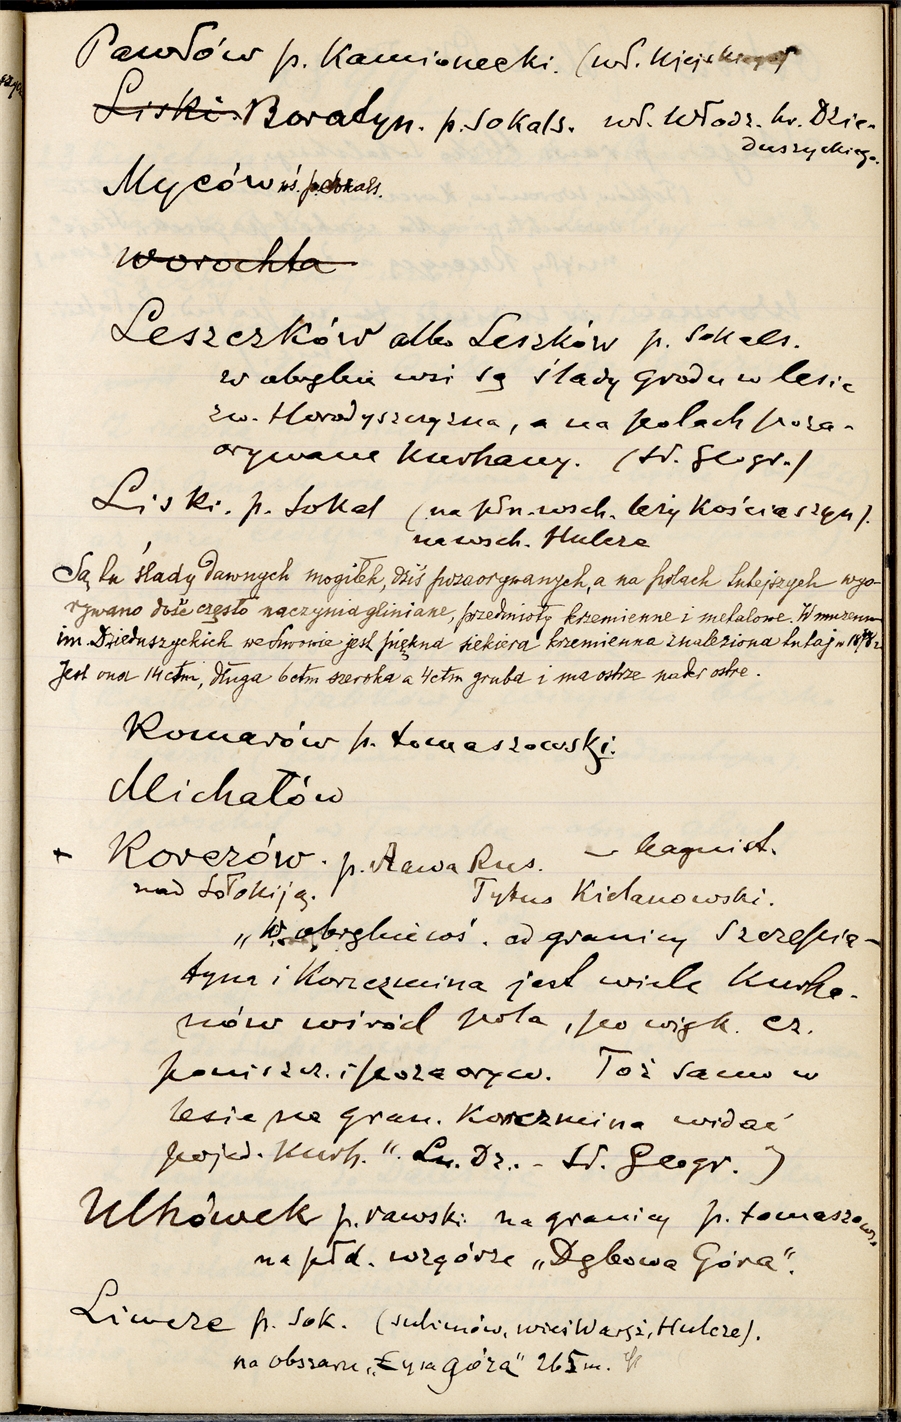 Pawłów p. Kamionecki. (wł. Kijeskiego)
Liski. Boratyn. p. Sokals. wł. Włodz. hr. Dzie-
duszyckiego.
Myców wś. p. Sokals.
Worochta
Leszczków albo Leszków p. Sokals.
w obrębie wsi są ślady grodu w lesie
zw. Horodyszczyzna, a na polach poza-
orywane Kurhany. (Sł. geogr.)
Liski. p. Sokal (na płn.-wsch. leży Kościaszyn).
na wsch. Hulcze
Są tu ślady dawnych mogiłek, dziś pozaorywanych, a na polach tutejszych wyo-
rywano dość często naczynia gliniane, przedmioty krzemienne i metalowe. W muzeum
im. Dzieduszyckich we Lwowie jest piękna siekiera krzemienna znaleziona tutaj w
Jest ona 14 ctm, długa 6 ctm szeroka a 4 ctm gruba i ma ostrze nader ostre.
Komarów p. tomaszowski.
Michałów
+ Korczów. p. Rawa Rus. — hagnist.
nad Sołokiją. Tytus Kielanowski.
„W obrębie wś. od granicy Szczepia-
tyna i Korczmina jest wiele Kurha-
nów wśród pola, po więk. cz.
poniszcz. i pozaoryw. Toż samo w
lesie na gran. Korczmina widać
pojed. Kurh." Lu. Dz. - Sł. Geogr. )
Ulhówek p. rawski na granicy p. tomaszows.
na płd. wzgórze „Dębowa Góra".
Liwcze p. Sok. (Sulimów, wieś Waręż, Hulcze).
na obszarze „Łysa góra" 265 m.